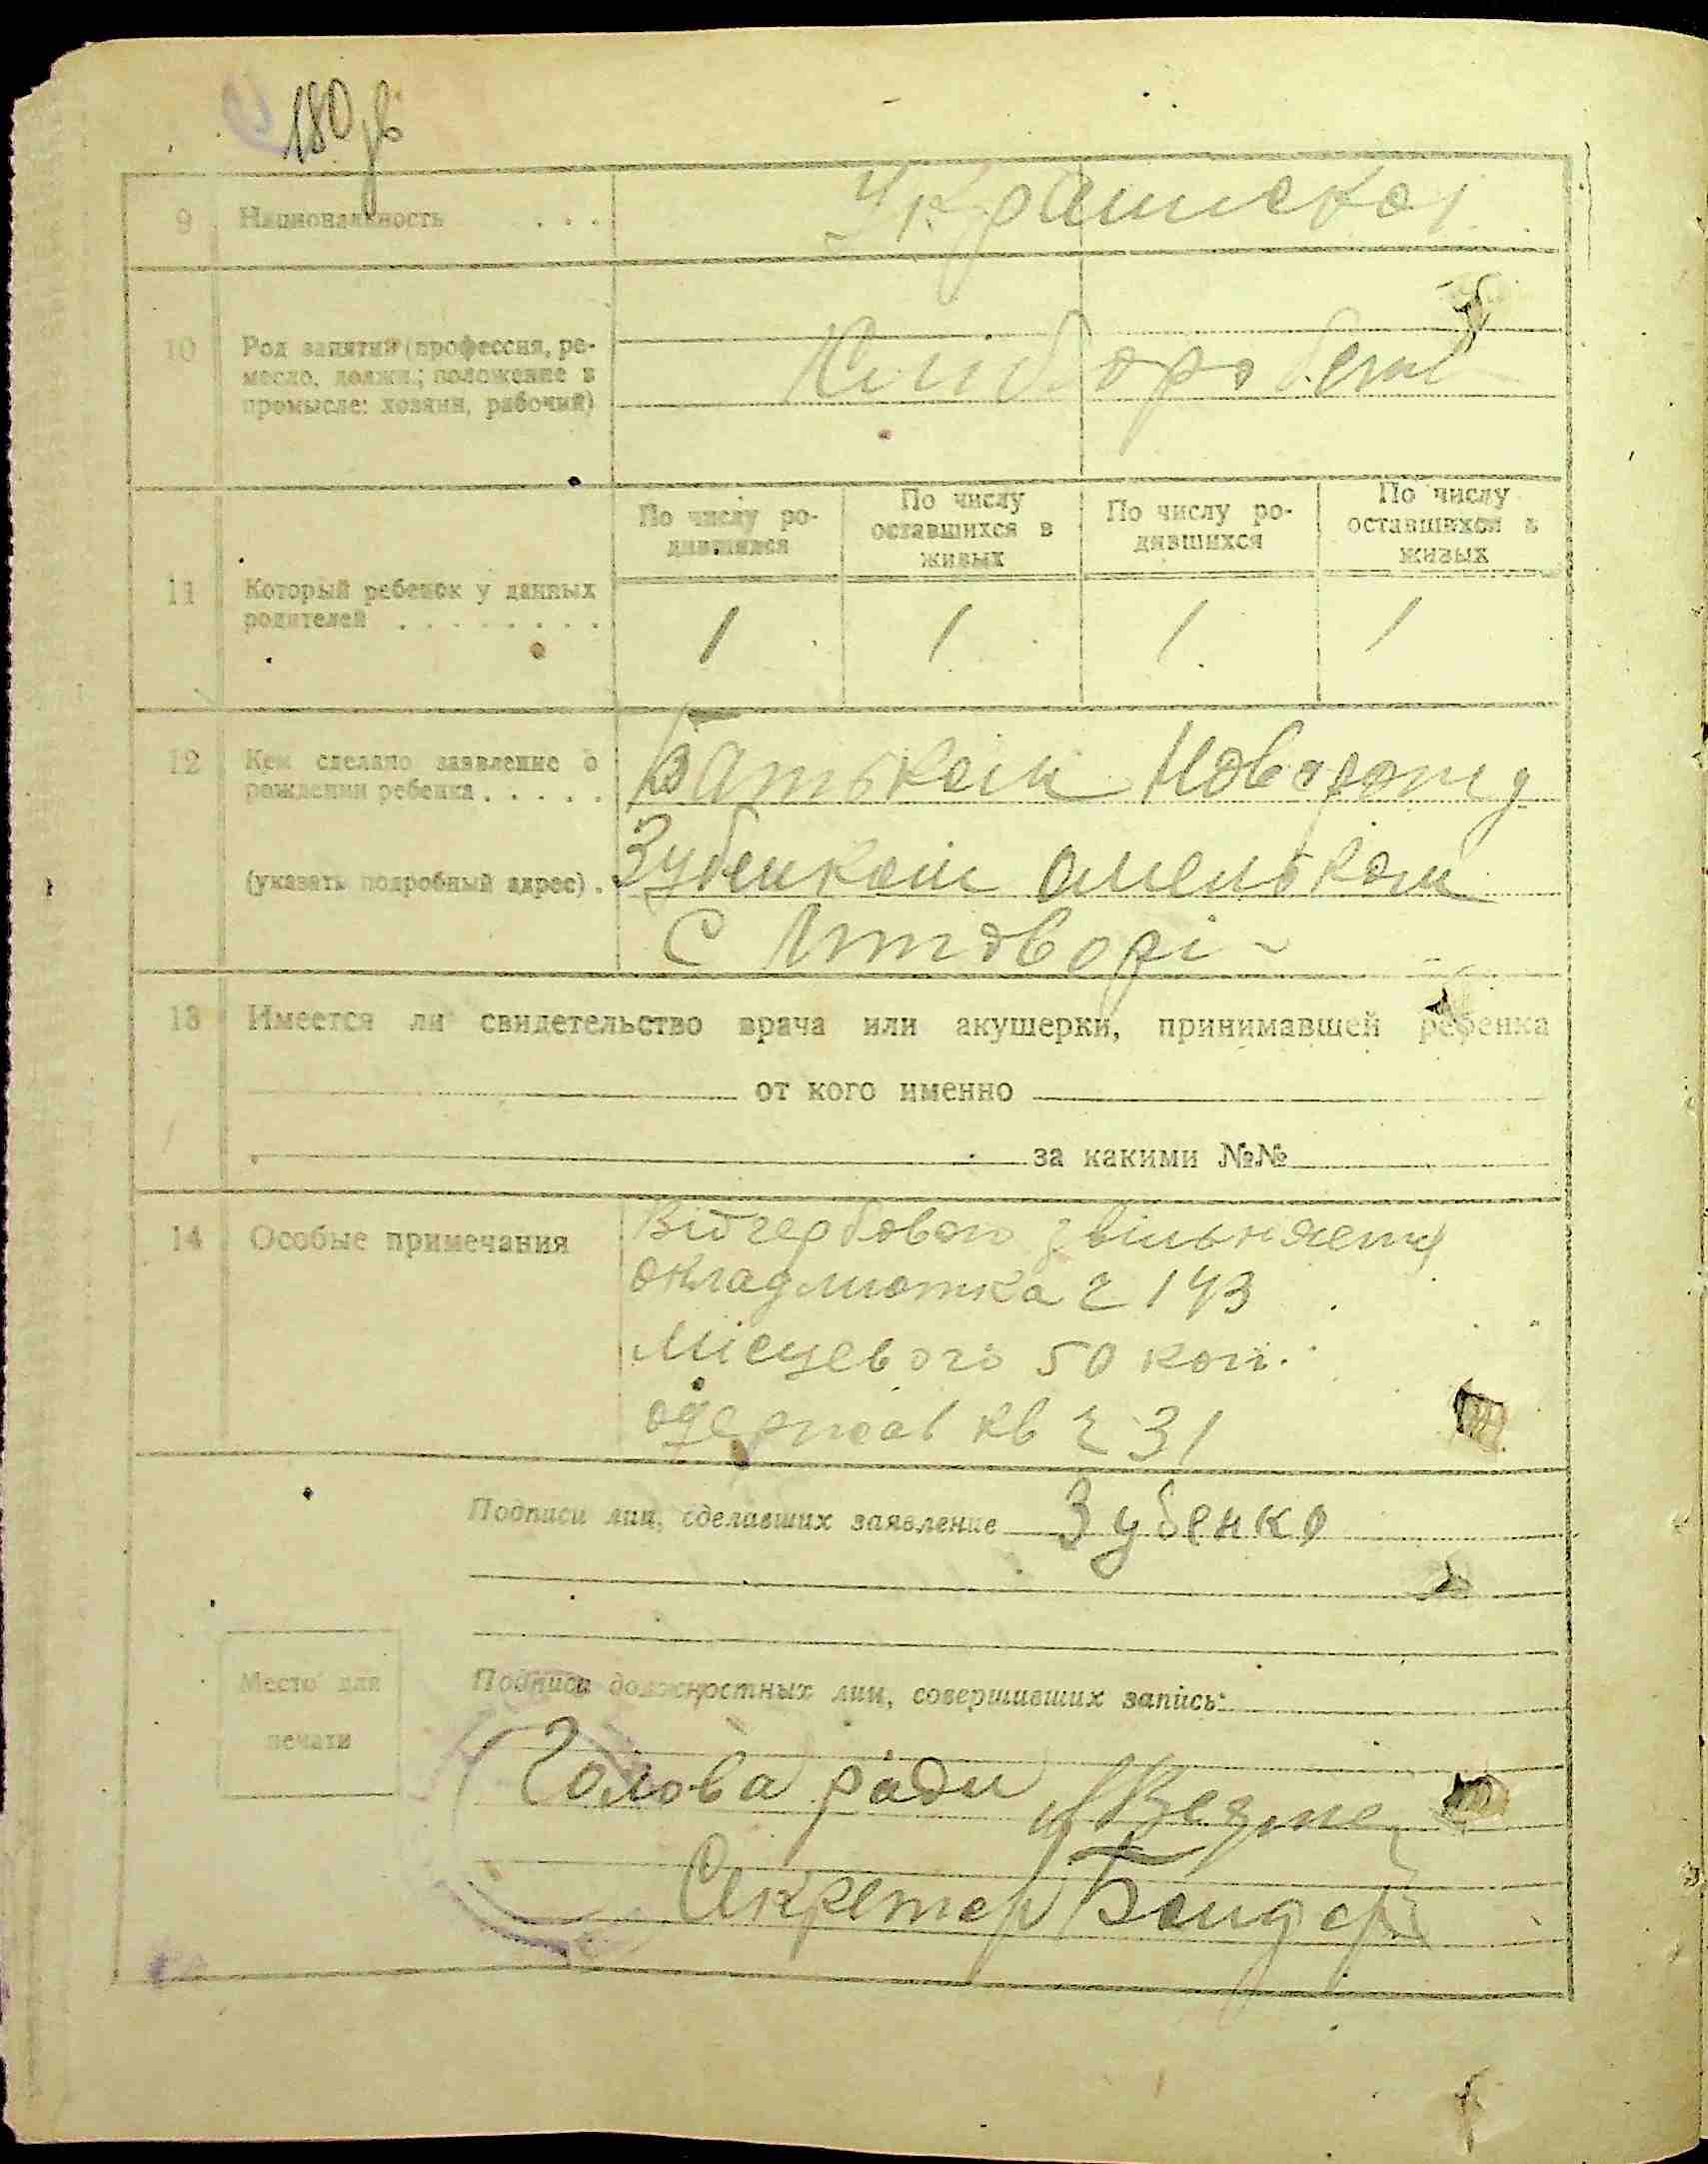 180 зв
9 Национальность . . . Українскої
10 Род занятий (профессия, ре-
месло, должн.; положение в
промысле: хозяин, рабочий)
Хлібороби
По числу ро-
дившихся
По числу
оставшихся в
живых
По числу ро-
дившихся
По числу
оставшихся в
живых
11 Который ребенок у данных
родителей . . . . . . . .
1 1 1 1
12 Кем сделано заявление о
рождении ребенка . . . . .
(указать подробный адрес) .
Батьком
Зубенком Омельком
С
13 Имеется ли свидетельство врача или акушерки, принимавшей ребенка
от кого именно
за какими №№
14 Особые примечания
Від гербового звільняется
окладлистка 143
Місцевого 50 коп.
одержав кв 31
Подписи лиц, сделавших заявление Зубенко
Место для
печати
Подписи должностных лиц, совершивших запись:
Голова ради
Секретар Бондар